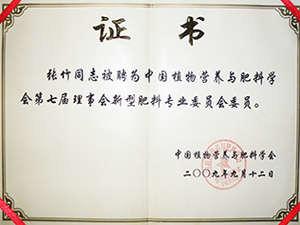 证书
张竹同志被聘为中国植物营养与肥料学
会第七届理事会新型肥料专业委员会委员。
中国植物营养与肥料学会
二〇〇九年九月十二日